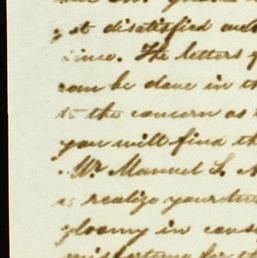 get disatisfied and
since. The letters
can be done in th
to the concern as
you will find th
Mr. Manuel S.
as realize your
gloomy in cons
misfortune for th